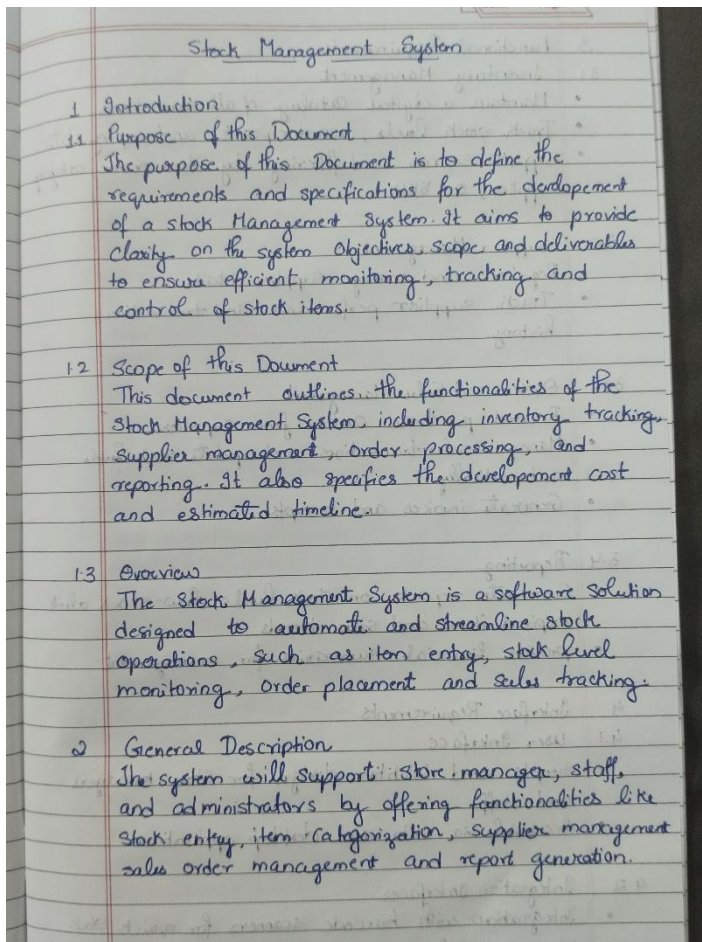 Stock Management System
1 Introduction
1.1 Purpose of this Document
The purpose of this Document is to define the
requirements and specifications for the developement
of a stock Management System. It aims to provide
Clarity on the system Objectives, scope and deliverables
to ensure efficient, monitoring, tracking and
control of stock items.
1.2 Scope of this Document
This document outlines the functionalities of the
Stock Management System, including inventory tracking,
Supplier management, Order processing, and
reporting. It also specifies the developement cost
and estimated timeline.
1.3 Overview
The Stock Management System is a software solution
designed to automate and streamline stock
operations, such as item entry, stock level
monitoring, Order placement and sales tracking.
2 General Description
The system will support store manager, staff,
and administrators by offering functionalities like
Stock entry, item Categorization, supplier management
sales order management and report generation.